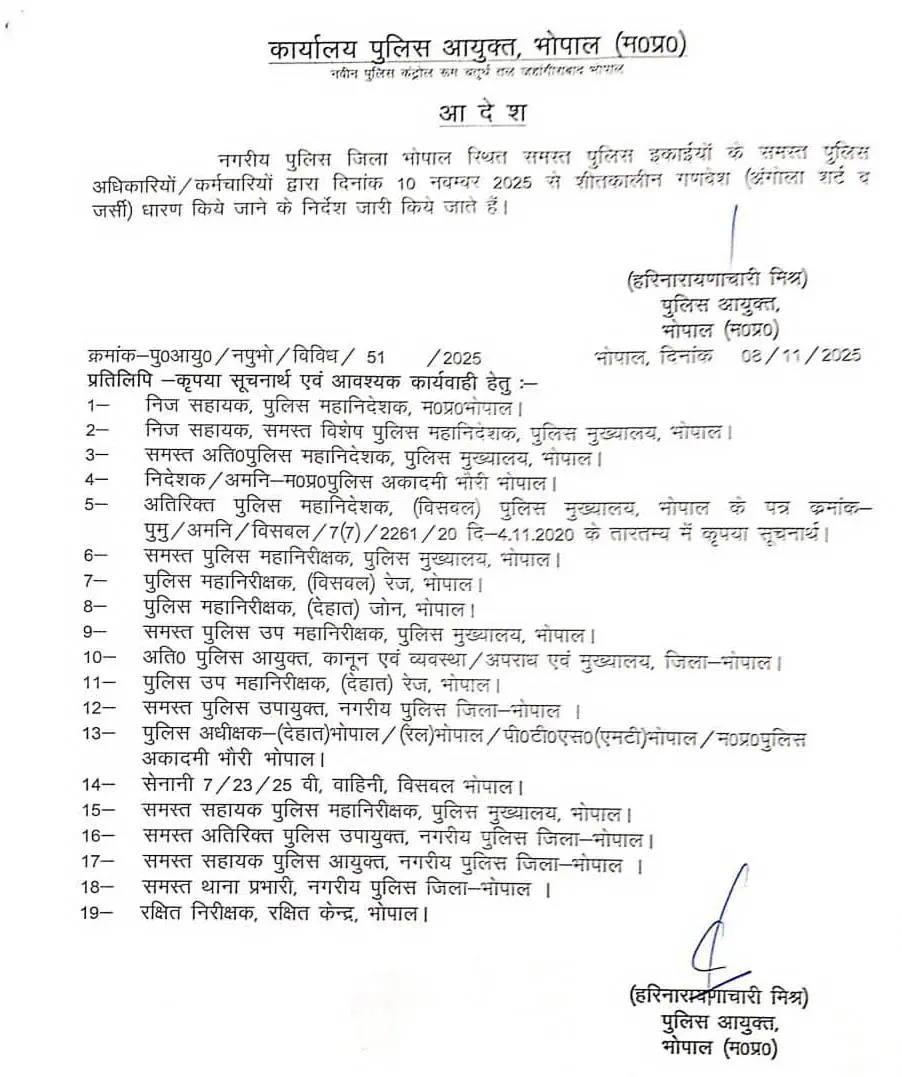 कार्यालय पुलिस आयुक्त, भोपाल (म0प्र0)
नवीन पुलिस कंट्रोल रूम चतुर्थ तल जहांगीराबाद भोपाल
आ दे श
नगरीय पुलिस जिला भोपाल स्थित समस्त पुलिस इकाईयों के समस्त पुलिस
अधिकारियों/कर्मचारियों द्वारा दिनांक 10 नवम्बर 2025 से शीतकालीन गणवेश (अंगोला शर्ट व
जर्सी) धारण किये जाने के निर्देश जारी किये जाते हैं।
(हरिनारायणाचारी मिश्र)
पुलिस आयुक्त,
भोपाल (म0प्र0)
क्रमांक–पु0आयु0/नपुभो/विविध/ 51 /2025 भोपाल, दिनांक 08/11/2025
प्रतिलिपि –कृपया सूचनार्थ एवं आवश्यक कार्यवाही हेतु :–
1– निज सहायक, पुलिस महानिदेशक, म0प्र0भोपाल।
2– निज सहायक, समस्त विशेष पुलिस महानिदेशक, पुलिस मुख्यालय, भोपाल।
3– समस्त अति0पुलिस महानिदेशक, पुलिस मुख्यालय, भोपाल।
4– निदेशक/अमनि–म0प्र0पुलिस अकादमी भौरी भोपाल।
5– अतिरिक्त पुलिस महानिदेशक, (विसबल) पुलिस मुख्यालय, भोपाल के पत्र क्रमांक–
पुमु/अमनि/विसबल/7(7)/2261/20 दि–4.11.2020 के तारतम्य में कृपया सूचनार्थ।
6– समस्त पुलिस महानिरीक्षक, पुलिस मुख्यालय, भोपाल।
7– पुलिस महानिरीक्षक, (विसबल) रेज, भोपाल।
8– पुलिस महानिरीक्षक, (देहात) जोन, भोपाल।
9– समस्त पुलिस उप महानिरीक्षक, पुलिस मुख्यालय, भोपाल।
10– अति0 पुलिस आयुक्त, कानून एवं व्यवस्था/अपराध एवं मुख्यालय, जिला–भोपाल।
11– पुलिस उप महानिरीक्षक, (देहात) रेज, भोपाल।
12– समस्त पुलिस उपायुक्त, नगरीय पुलिस जिला–भोपाल ।
13– पुलिस अधीक्षक–(देहात)भोपाल/(रेल)भोपाल/पी0टी0एस0(एमटी)भोपाल/म0प्र0पुलिस
अकादमी भौरी भोपाल।
14– सेनानी 7/23/25 वी, वाहिनी, विसबल भोपाल।
15– समस्त सहायक पुलिस महानिरीक्षक, पुलिस मुख्यालय, भोपाल।
16– समस्त अतिरिक्त पुलिस उपायुक्त, नगरीय पुलिस जिला–भोपाल।
17– समस्त सहायक पुलिस आयुक्त, नगरीय पुलिस जिला–भोपाल ।
18– समस्त थाना प्रभारी, नगरीय पुलिस जिला–भोपाल ।
19– रक्षित निरीक्षक, रक्षित केन्द्र, भोपाल।
(हरिनारायणाचारी मिश्र)
पुलिस आयुक्त,
भोपाल (म0प्र0)